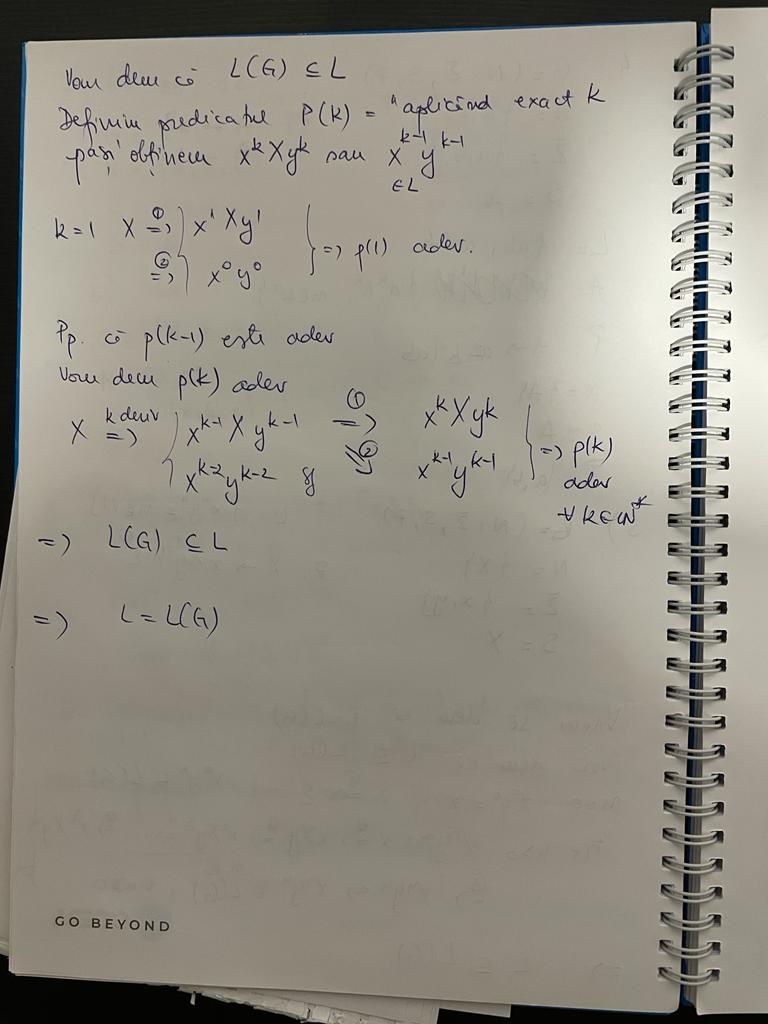 Vom dem că L(G) ⊆ L
Definim predicatul P(k) = "aplicînd exact k
pași obținem x^k X y^k sau x^{k-1} y^{k-1}
∈ L
k=1 X ⇒① x¹Xy¹ } ⇒ p(1) adev.
⇒② x⁰y⁰
Pp. că p(k-1) este adev
Vom dem p(k) adev
X ⇒ k deriv x^{k-1} X y^{k-1} ⇒① x^k X y^k } ⇒ p(k)
x^{k-2} y^{k-2} ⇒② x^{k-1} y^{k-1} adev
∀ k∈ℕ*
⇒ L(G) ⊆ L
⇒ L = L(G)
GO BEYOND